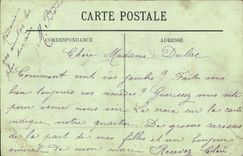 CARTE POSTALE
CORRESPONDANCE
ADRESSE
Chère Madame Dulac
Comment vont vos jambes ? Faites vous
bien toujours vos remèdes ? Guérissez vous vite
pour venir nous voir. La croix sur la carte
indique notre quartier. De grosses caresses
de la part de mes filles et un bonjour
amical de mon mari. Recevez Chère